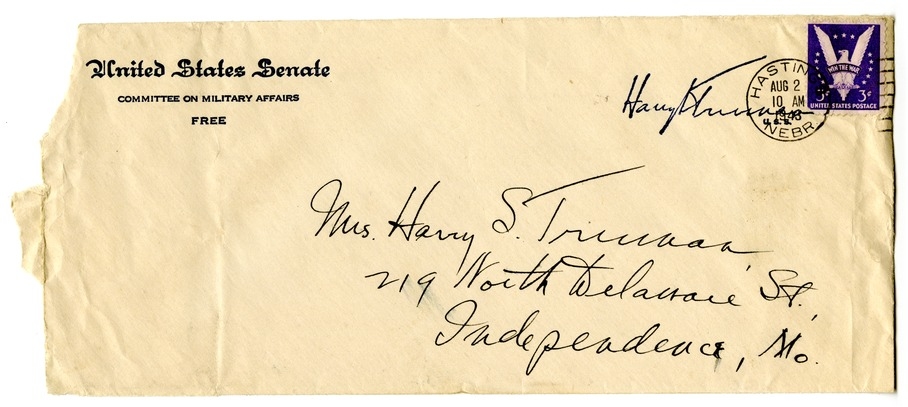 United States Senate
COMMITTEE ON MILITARY AFFAIRS
FREE
Harry S Truman
HASTINGS
AUG 2
10 AM
1943
NEBR.
WIN THE WAR
3¢ 3¢
UNITED STATES POSTAGE
Mrs. Harry S. Truman
219 North Delaware St.,
Independence, Mo.